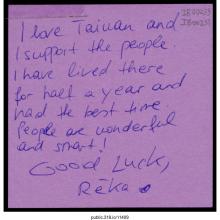 I love Taiwan and
I support the people.
I have lived there
for half a year and
had the best time.
People are wonderful
and smart!
Good Luck,
Réka
public.318.io/11489